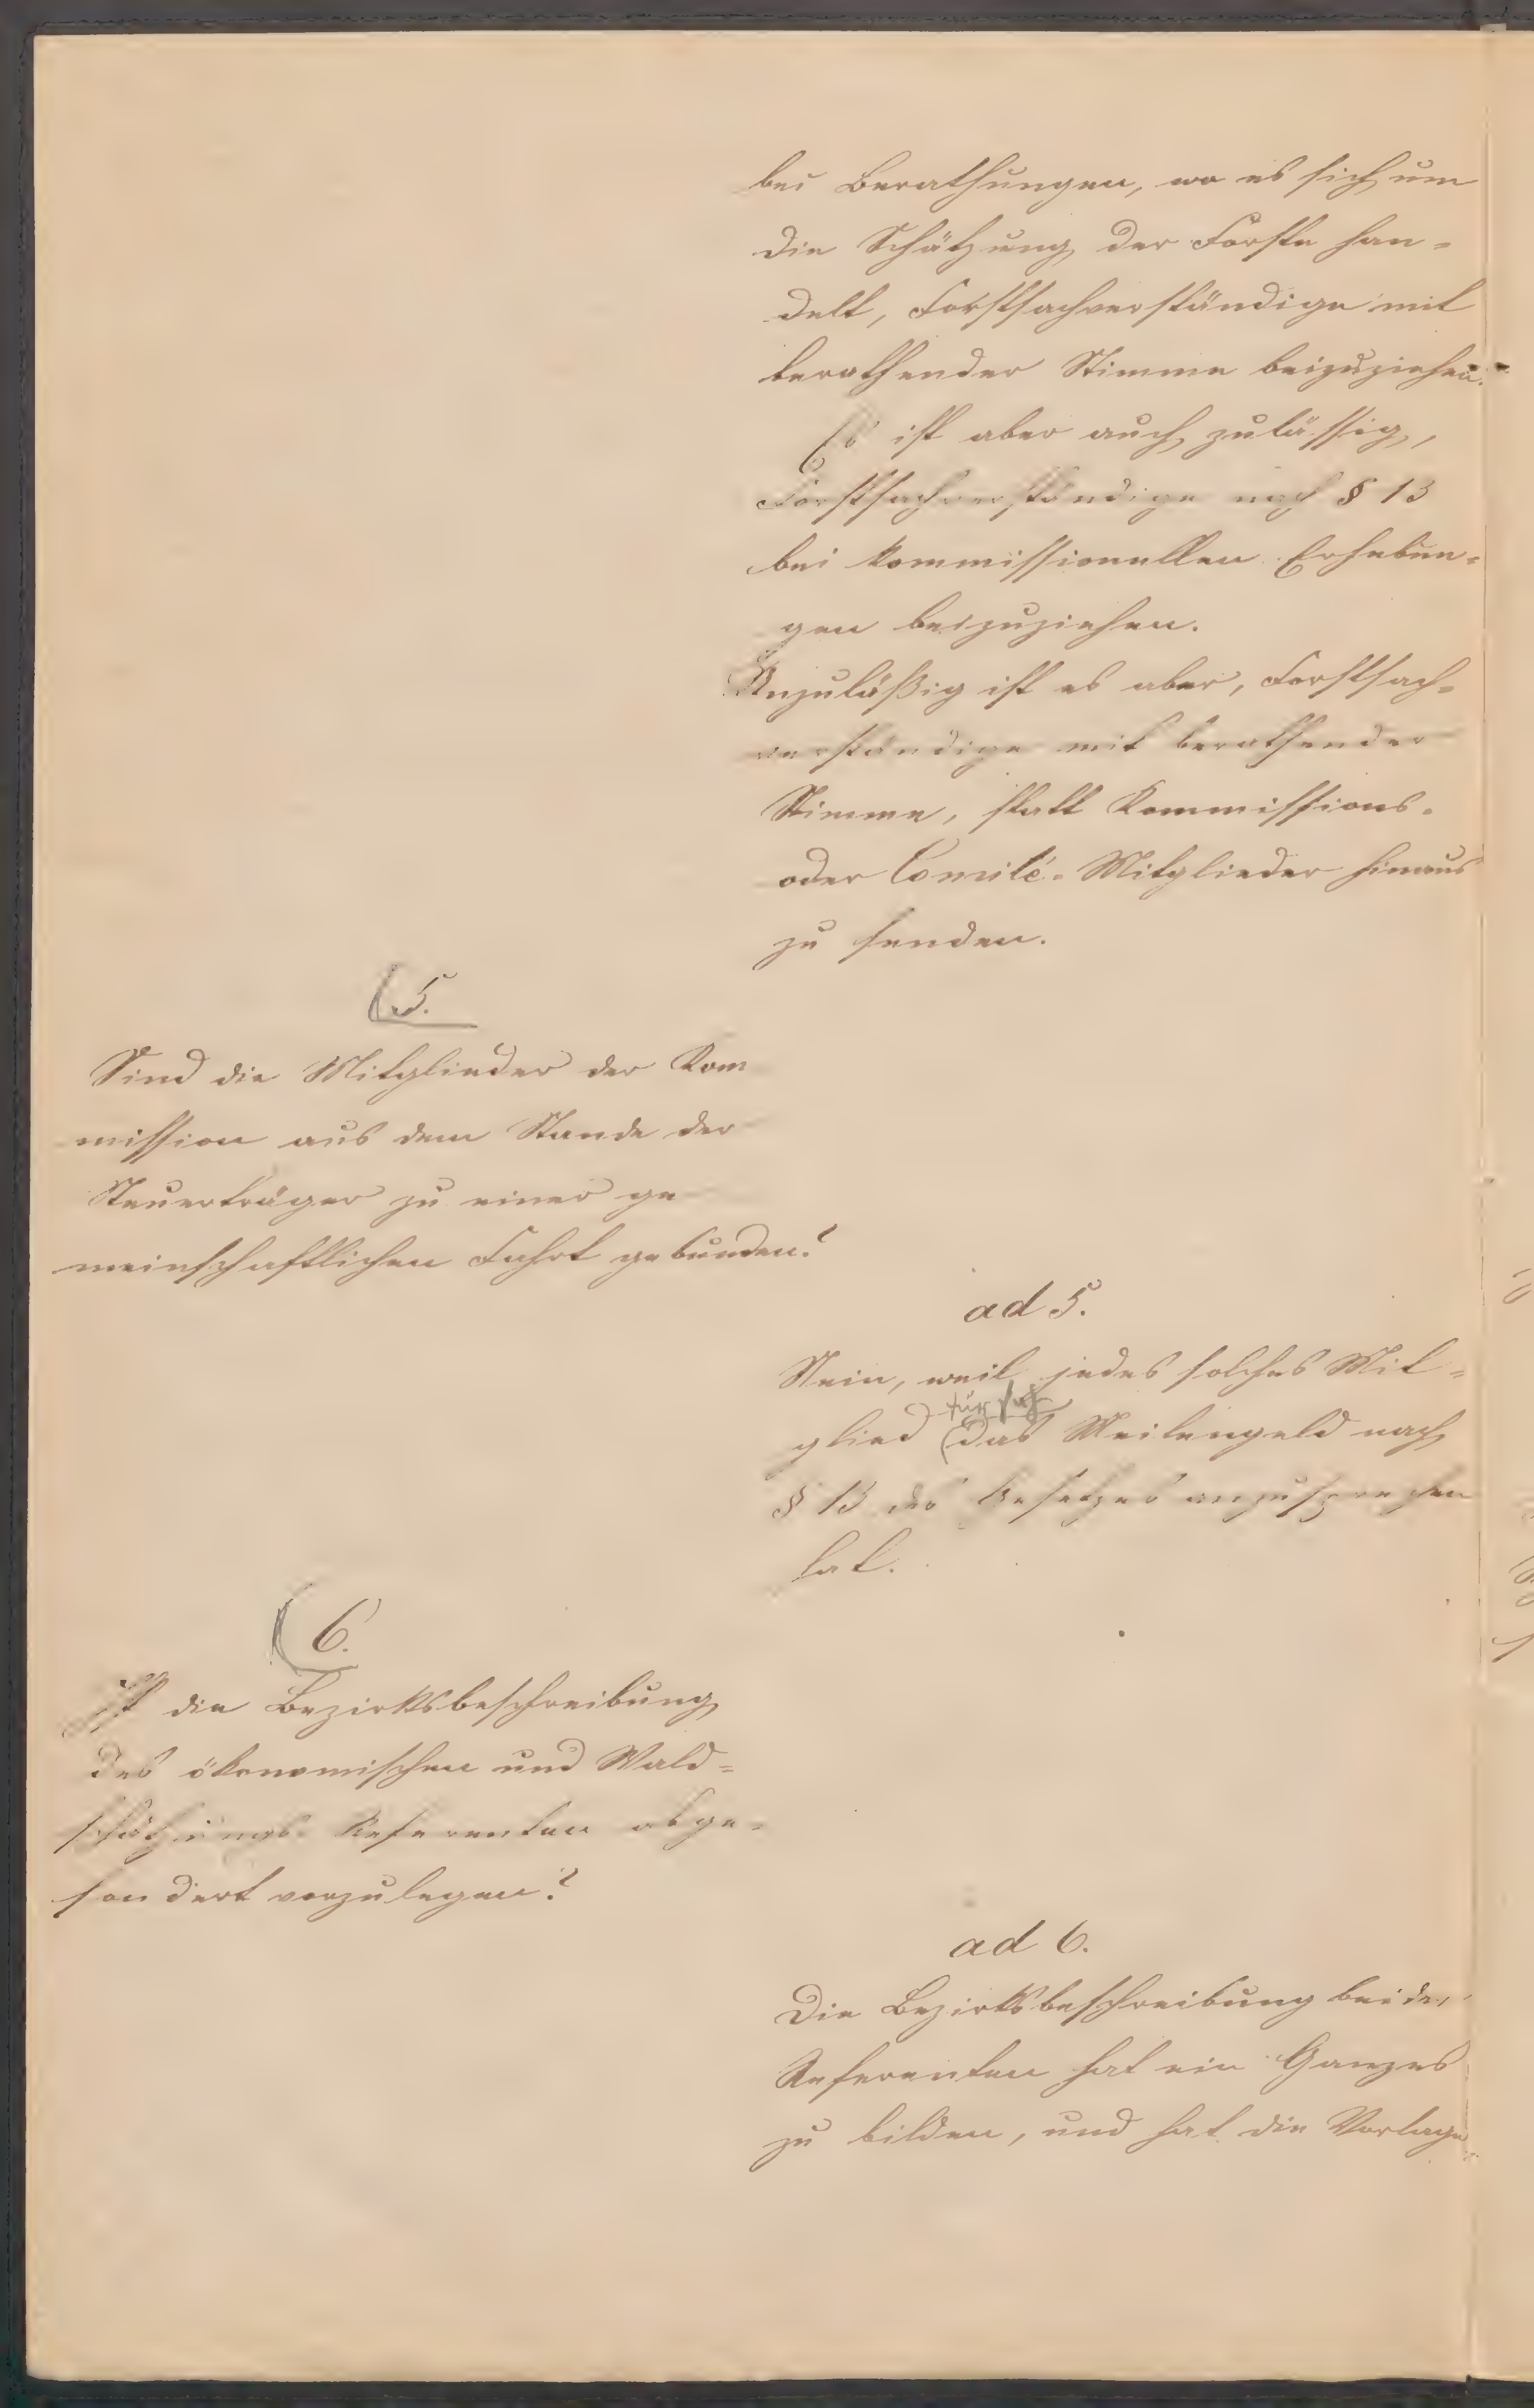 bei Berathungen, wo es sich um
die Schätzung der Forste han-
delt, Forstsachverständige mit
berathender Stimme beizuziehen.
Es ist aber auch zulässig,
Forstsachverständige nach § 13
bei kommissionellen Erhebun-
gen beizuziehen.
Unzuläßig ist es aber, Forstsach-
verständige mit berathender
Stimme, statt Kommissions-
oder Comité-Mitglieder hinaus
zu senden.
5.
Sind die Mitglieder der Kom
mission aus dem Stande der
Steuerträger zu einer ge
meinschaftlichen Fahrt gebunden?
ad 5.
Nein, weil jedes solches Mit-
für sich
glied das Meilengeld nach
§ 13 des Gesetzes anzusprechen
hat.
6.
Ist die Bezirksbeschreibung
des ökonomischen und Wald-
schätzungs-Referenten abge-
sondert vorzulegen?
ad 6.
Die Bezirksbeschreibung beider
Referenten hat ein Ganzes
zu bilden, und hat die Vorlage